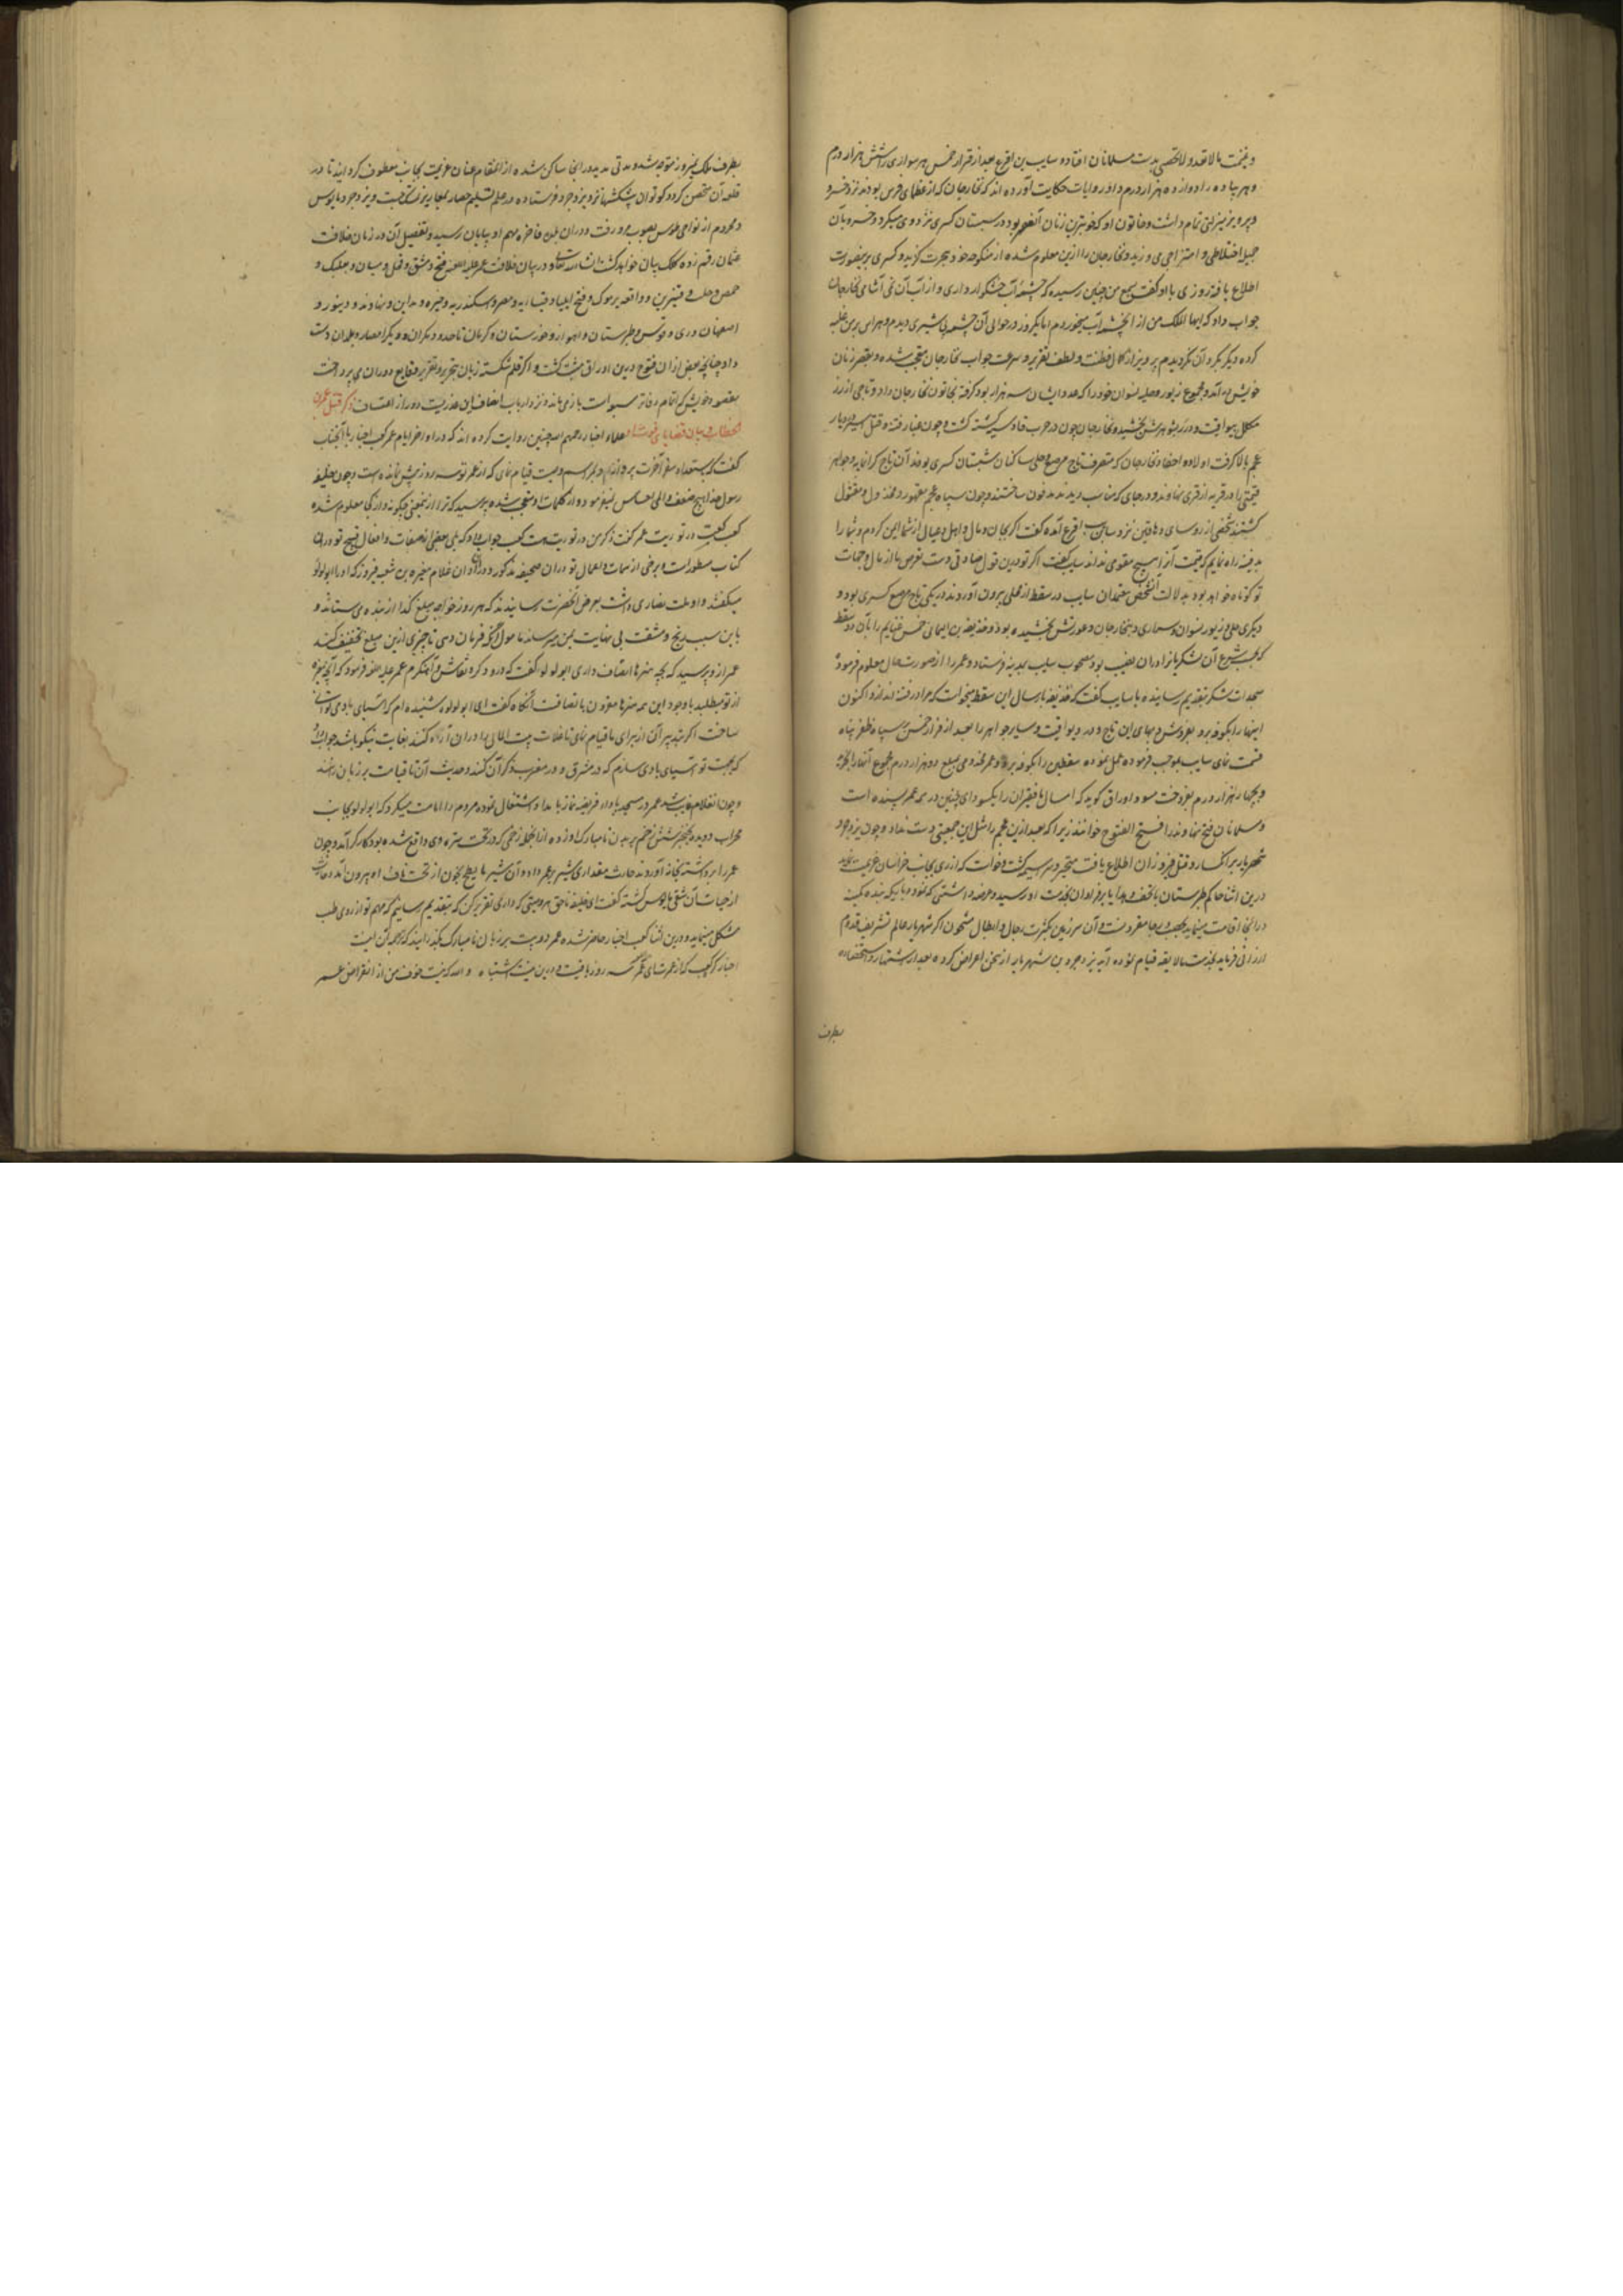 و غنیمت مالا تعد و لا تحصی بدست مسلمانان افتاده سایب بن اقرع بعد از قرار خمس هر سواری را شش هزار درم
و هر پیاده را دوازده هزار درم داد و در روایات حکایت آورده اند که نخارجان که از عظمای فرس بود نزد خسرو
و پرویز منزلتی تمام داشت و خاتون او که خوبترین زنان آن عصر بود در شبستان کسری تردد می میکرد و خسرو بآن
جمیله اختلاطی و امتزاجی می ورزید و نخارجان را ازین معلوم شده از منکوحه خود هجرت گزید و کسری برین صورت
اطلاع یافته روزی با او گفت بسمع من چنین رسیده که چشمه آب خشکوار داری و از آب آن نمی آشامی نخارجان
جواب داد که ایها الملک من از آن چشمه آب میخوردم اما یکروز در حوالی آن چشمه پی شیری دیدم و هراس بر من غلبه
کرده دیگر بکرد آن نکردیدم پرویز از کمال فطنت و لطف تقریر و سرعت جواب نخارجان متعجب شده و بقصر زنان
خویش در آمد و مجموع زیور و حلیه نسوان خود را که عدد ایشان سه هزار بود گرفته بخاتون نخارجان داد و تاجی از زر
مکلل بیواقیت و درر بشوهرش بخشید و نخارجان چون در حرب قادسیه کشته گشت و چون غبار فتنه و قتل
عجم بالا گرفت اولاد و احفاد نخارجان که متصرف تاج مرصع و حلی ساکنان شبستان کسری بودند آن تاج گرانمایه و جواهر
قیمتی را در قریه از قری نهاوند در جای که مناسب دیدند مدفون ساختند و چون سپاه عجم مقهور و مخذول و مقتول
گشتند شخصی از روسای دهاقین نزد سایب اقرع آمده گفت اگر بجان و مال و اهل و عیال از شما ایمن گردم و شما را
بدفینه راه نمایم که قیمت آنرا هیچ مقومی نداند سایب گفت اگر تو درین قول صادقی دست تعرض ما از مال و جهات
تو کوتاه خواهد بود بدلالت آن شخص معتمدان سایب دو سقط از محلی بیرون آوردند در یکی تاج مرصع کسری بود و
دیگری حلی و زیور نسوان وسماری و بنخارجان و عورتش بخشیده بود و حذیفه بن الیمانی خمس غنایم را با آن دو سقط
که بحسب شرع آن لشکریانرا در آن نصیب بود مصحوب سایب بمدینه فرستاد و عمر را از صورت حال معلوم فرموده
سجدات شکر بتقدیم رسانیده با سایب گفت که حذیفه بارسال این سقط میخواست که مرا در فتنه اندازد اکنون
اینها را بکوفه برد بفروش و بهای این تاج و درر و یواقیت و سایر جواهر را بعد از فراز خمس بر سپاه ظفر پناه
قسمت نمای سایب بموجب فرموده عمل نموده سقطین را بکوفه برده و عمر مخزومی بمبلغ دو هزار درم مجموع آنها را بخرید
و بچهار هزار درم بفروخت مسود اوراق گوید که امسال ما فقیران را یکسودای چنین در همه عمر بسنده است
و مسلمانان فتح نهاوند را فتح الفتوح خوانند زیرا که بعد ازین عجم را مثل این جمعیتی دست نداد و چون یزدجرد
شهریار بر انکسار و قتل فیروزان اطلاع یافت متحیر و سراسیمه گشت و خواست که از ری بجانب خراسان عزیمت نماید
درین اثنا حاکم طبرستان با تحف و هدایا بر فراوان بخدمت او رسید و عرضه داشتی که نموده باینکه بنده کمینه
در آنجا اقامت مینماید بحصانت جا مغرور نیست و آن سرزمین بکثرت رجال و ابطال مشحون اگر شهریار عالم تشریف قدوم
ارزانی فرماید بخدمت مالایقه قیام نموده آید یزدجرد بن شهریار از سخن اعراض کرده بعد از استشار و استخاره
بطرف
بطرف ملک نیمروز متوجه شد و مدتی مدید در انجا ساکن شده از انمقام عنان عزیمت بجانب معطوف گردانید تا در
قلعه آن متحصن گردد کوتوال آن پیشکشها نزد یزدجرد فرستاده در عدم تسلیم حصار بمعاذیر تمسک جست و یزدجرد مایوس
و محروم از نواحی طوس بصوب مرو رفت و در آن بلده فاخره مهم او بپایان رسید و تفصیل آن در زمان خلافت
عثمان رقم زده کلک بیان خواهد گشت انشاء الله تعالی و در بیان خلافت عمر علیه اللعنه فتح دمشق و فحل و میسان و بعلبک و
حمص و حلب و قنسرین و واقعه یرموک و فتح ایلیا و قیساریه و مصر و اسکندریه و جیره و مداین و نهاوند و دینور و
اصفهان و ری و قومس و طبرستان و اهواز و خوزستان و کرمان تا حدود مکران و دیگر امصار و بلدان دست
داد چنانچه بعضی از ان فتوح درین اوراق مثبت گشت و اگر قلم شکسته زبان بتحریر و تقریر وقایع دوران می پرداخت
بمقصود خویش که اتمام دفاتر سبوات بازی ماند و نزد ارباب انصاف این عذریست دور از اعتساف ذکر قتل عمر بن
الخطاب و بیان قضایای علماء اخبار رحمهم الله چنین روایت کرده اند که در اواخر ایام عمر کعب احبار با آنجناب
گفت که باستعداد سفر آخرت پرداز و بلوازم مراسم وصیت قیام نمای که از عمر تو سه روز بیش نمانده است و چون خلیفه
رسول خدا هیچ ضعف و المی احساس نمیفرمود و از کلمات او متعجب شده پرسید که ترا از اینمعنی چگونه و از کجا معلوم شده
کعب گفت در توریت عمر گفت ذکر من در توریت هست کعب جواب داد که بلی بعضی از صفات و افعال قبیح تو در آن
کتاب مسطورات و برخی از سمات و اعمال تو در آن صحیفه مذکور و در آن اوان غلام مغیره بن شعبه فیروز که او را ابولولو
میگفتند و او ملت نصاری داشت بعرض آنحضرت رسانیدند که هر روز خواجه مبلغ کذا از بنده می ستاند و
باین سبب رنج و مشقت بی نهایت بمن میرساند مامول آنکه فرمان دهی تا چیزی ازین مبلغ تخفیف کنند
عمر از و پرسید که بچه هنرها اتصاف داری ابولولو گفت که درودگر و نقاش و آهنگرم عمر علیه اللعنه فرمود که آنچه مغیره
از تو میطلبد باوجود این همه هنرها مقرون بانصافست آنگاه گفت ای ابولولوه شنیده ام که آسیای بادی توانی
ساخت اگر بتدبیر آن از برای ما قیام نمای تا غلات بیت المال را در آن آرد کنند بغایت نیکو باشد جواب داد
که بجهت تو آسیای بادی سازم که در مشرق و در مغرب ذکر آن کنند و حدیث آن تا قیامت بر زبان رانند
و چون انغلام غایب شد عمر در مسجد باداء فریضه نماز بامداد اشتغال نموده مردم را امامت میکرد که ابولولو بجانب
محراب دویده بخنجر شش زخم بر بدن نامبارک او زده از انجمله زخمی که در تحت سره وی واقع شده بود کارگر آمد و چون
عمر را برداشته بخانه آوردند حارث مقداری شیر بعمر داده آن شیر ملطخ بخون از تحت ناف او بیرون آمد و حارث
از حیات آن شقی مایوس گشته گفت ای خلیفه ناحق هر وصیتی که داری تقریر کن که بتقدیم رسانیم که مهم تو از روی طب
مشکل مینماید و درین اثنا کعب احبار حاضر شده عمر دو بیت بر زبان نامبارک بگذرانید که ترجمه آن اینست
اخبار کرد کعب که از عمرت ای عمر سه روز باقیست و درین نیست اشتباه والله که نیست خوف من از انقراض عمر